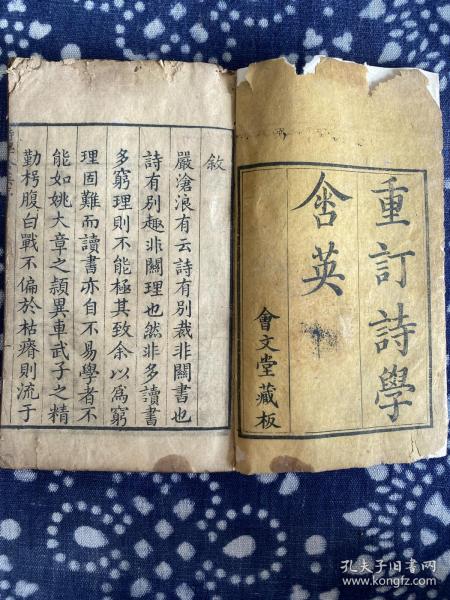 重訂詩學
含英
會文堂藏板
敘
嚴滄浪有云詩有別裁非關書也
詩有別趣非關理也然非多讀書
多窮理則不能極其致余以爲窮
理固難而讀書亦自不易學者不
能如姚大章之穎異車武子之精
勤枵腹白戰不偏於枯瘠則流于
孔夫子旧书网
www.kongfz.com